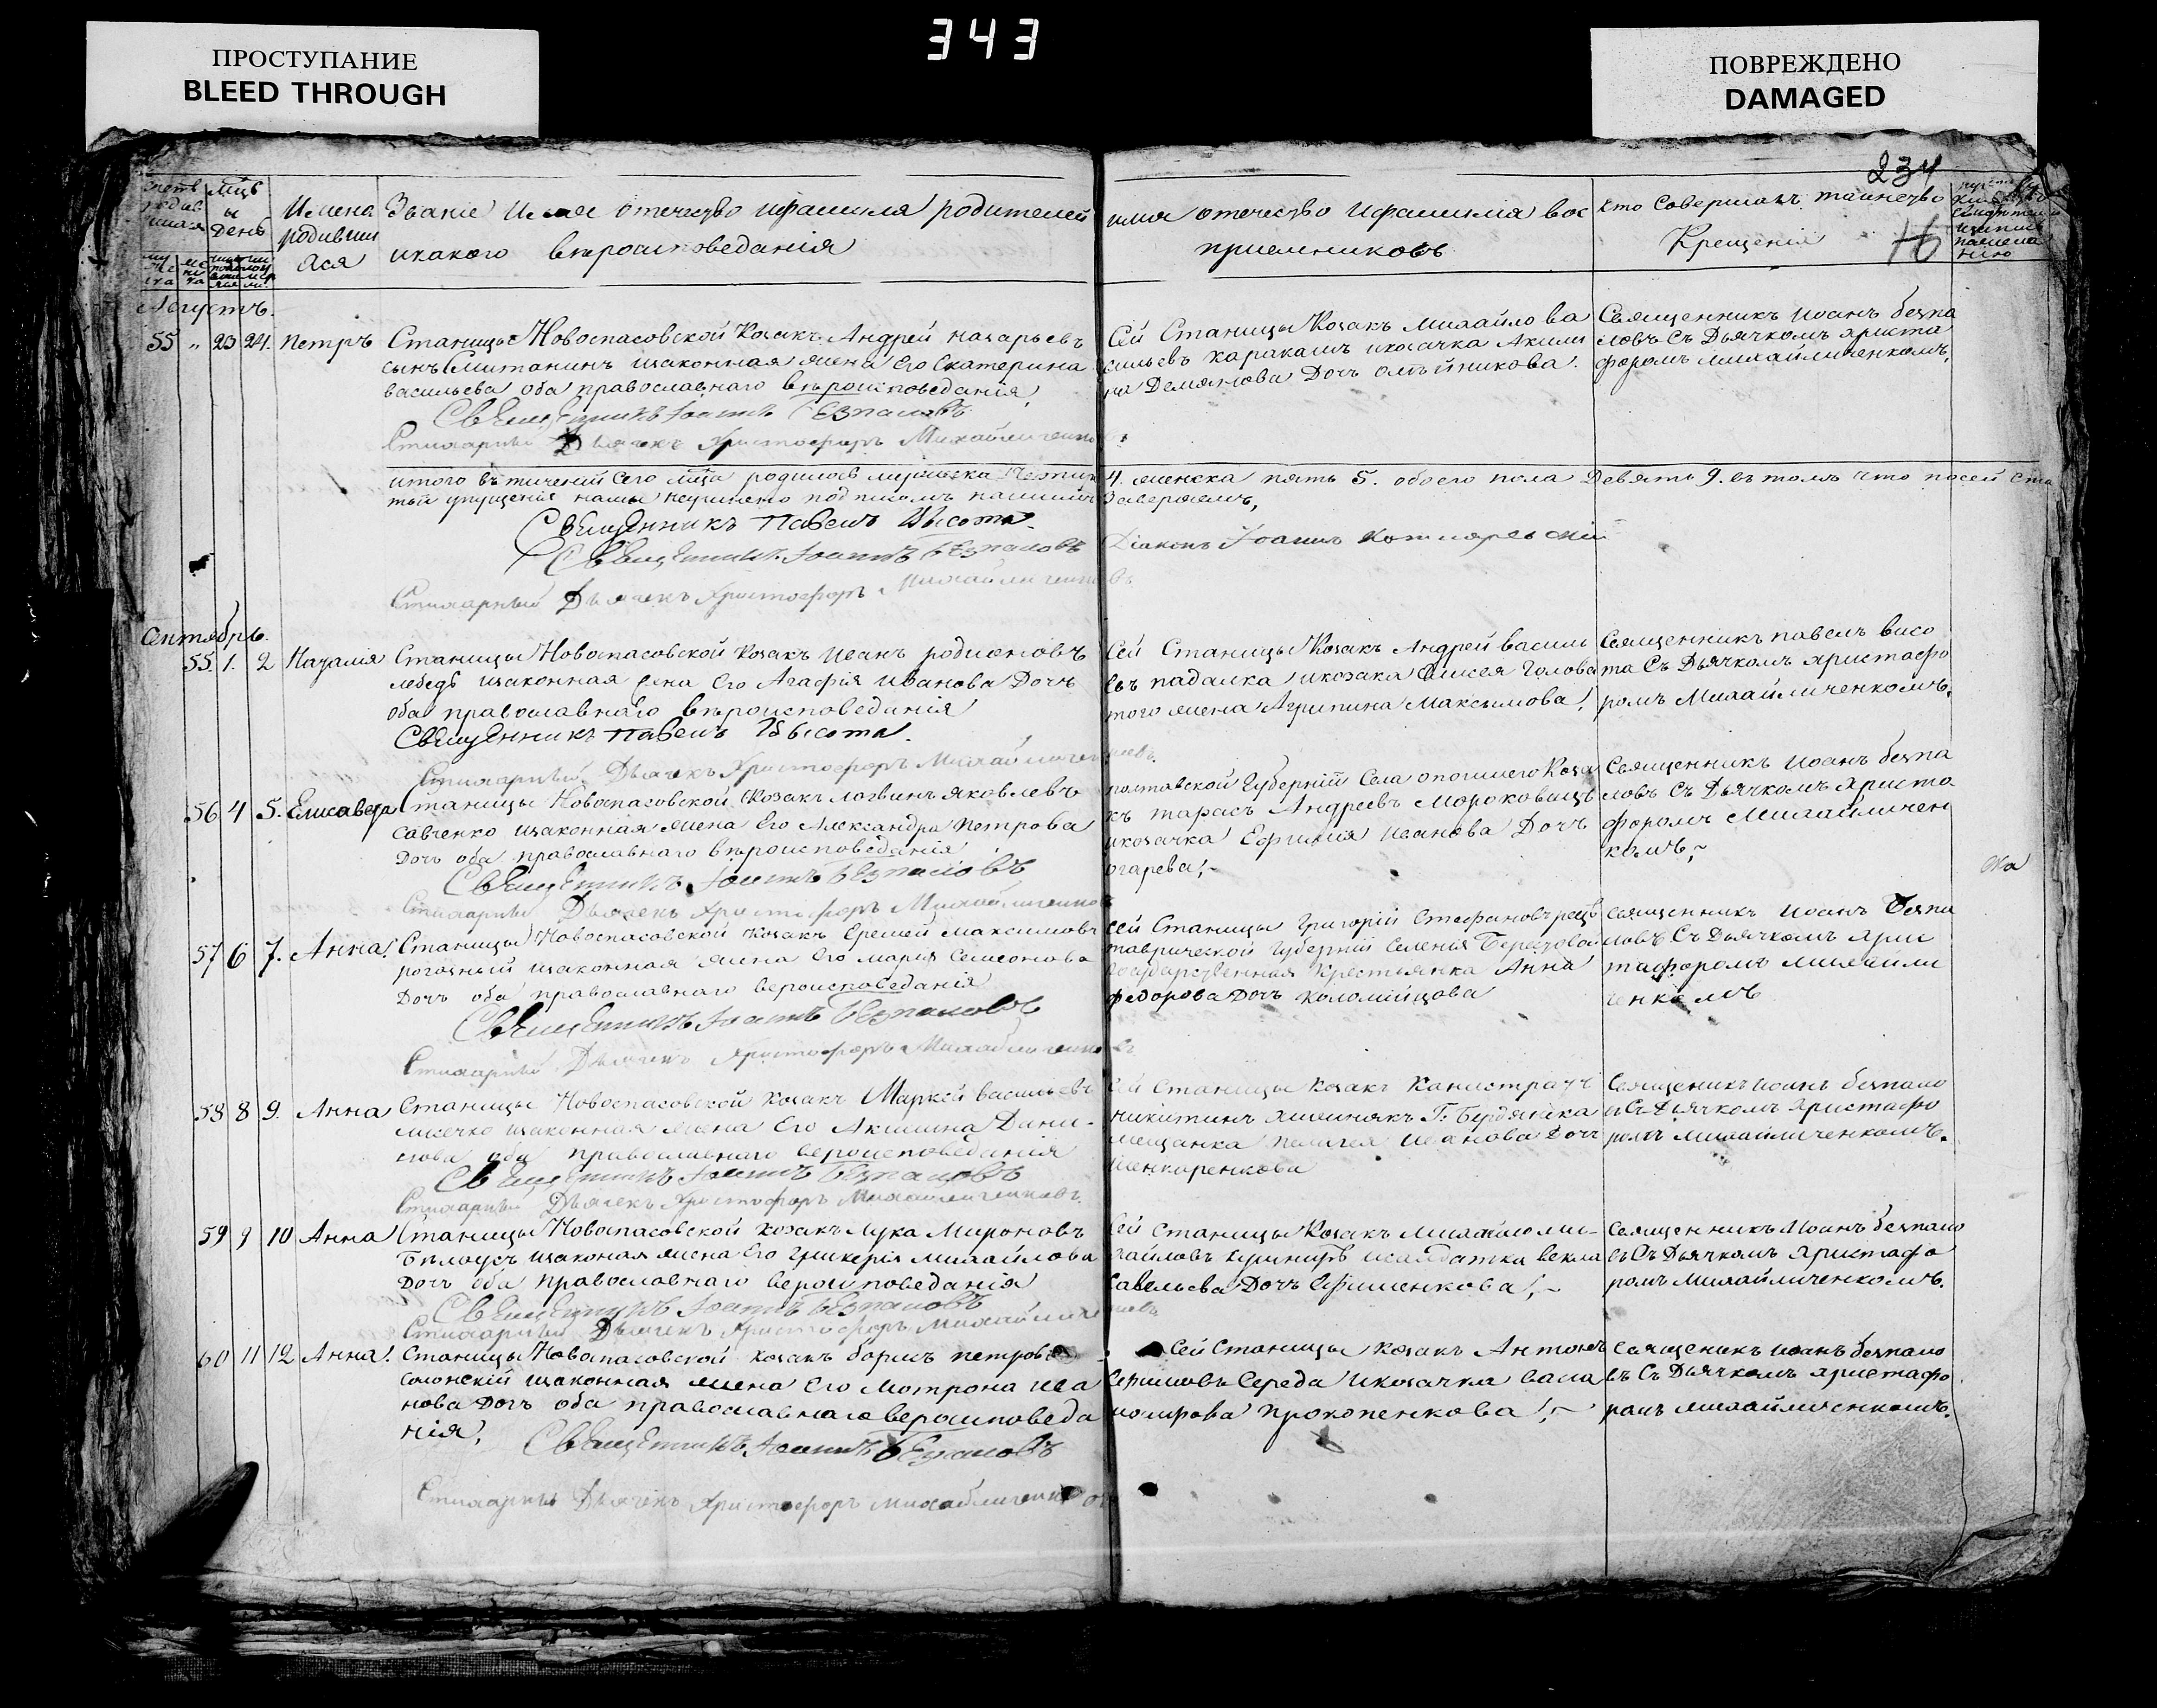 ПРОСТУПАНИЕ
BLEED THROUGH
343
ПОВРЕЖДЕНО
DAMAGED
234
мѣсяцъ и день
Имена родивши
хся
Званіе Имяе отечество ифамиля родителей
икакого вѣроисповеданія
имя отечество ифамилія вос
приемниковъ
кто Совершалъ таинство
Крещенія
Августъ.
55 " 23 24. Петръ
Станицы Новоспасовской Козакъ Андрей назарьевъ
сынъ изаконная жена Его Екатерина
васильева оба православнаго вѣроисповеданія
Священникъ Іоаннъ Безпаловъ
Стихарный Дьячекъ Христофоръ Михайличенковъ
Сей Станицы Козакъ Михайло ва
сильевъ каракашъ икозачка Акили
на Демянова Дочь олѣйникова.
Священникъ Иоанъ безпа
ловъ Съ Дьячкомъ христа
форомъ Михайличенкомъ,
итого втичений Сего мца родилось мужеска 4. женска пять 5. обоего пола Девять 9. въ томъ что посей
Заверяемъ,
Священникъ Павелъ Высота.
Священникъ Іоаннъ Безпаловъ
Діаконъ Іоаннъ Котляревскій
Стихарный Дьячекъ Христофоръ Михайличенковъ
Сентябрь.
55 1. 2 Наталія
Станицы Новоспасовской Козакъ Иванъ родионовъ
лебедь изаконная Его Агафія иванова Дочь
оба православнаго вѣроисповеданія
Священникъ Павелъ Высота.
Стихарный Дьячекъ Христофоръ Михайличенковъ
Сей Станицы Козакъ Андрей васили
евъ падалка икозака Голова
того жена Агрипина Максимова,
Священникъ павелъ висо
та Съ Дьячкомъ христафо
ромъ Михайличенкомъ,
56 4 5. Елисавета
Станицы Новоспасовской Козакъ логвинъ яковлевъ
савченко изаконная жена Его Александра Петрова
Дочь оба православнаго вѣроисповеданія
Священникъ Іоаннъ Безпаловъ
Стихарный Дьячекъ Христофоръ Михайличенковъ
полтавской Губерніи Села Коза
къ тарасъ Андреевъ Мороковецъ
икозачка Ефимія Иванова Дочь
огарева,
Священникъ Иоанъ безпа
ловъ Съ Дьячкомъ Христо
форомъ Михайличен
комъ,
57 6 7. Анна.
Станицы Новоспасовской Козакъ Еремей Максимовъ
рогозный изаконная жена Его мария Семеонова
Дочь оба православнаго вероисповеданія
Священникъ Іоаннъ Безпаловъ
Стихарный Дьячекъ Христофоръ Михайличенковъ
Сей Станицы Григорій Стефановъ
таврической Губерніи Селенія
государственная крестьянка Анна
федорова Дочь коломійцова
Священникъ Иоанъ Безпа
ловъ Съ Дьячкомъ Хрис
тафоромъ михайли
ченкомъ
58 8 9. Анна
Станицы Новоспасовской Козакъ Маркей васильевъ
изаконная жена Его Акилина Дани-
лова оба православнаго вероисповеданія
Священникъ Іоаннъ Безпаловъ
Стихарный Дьячекъ Христофоръ Михайличенковъ
Сей Станицы Козакъ Канистратъ
никитинъ Г. Бердянска
мещанка пелагея Иванова Дочь
Шинкаренкова
Священикъ Иоанъ безпало
въ Съ Дьячкомъ христафо
ромъ михайличенкомъ.
59 9 10 Анна
Станицы Новоспасовской козакъ Лука Мироновъ
Бѣлоусъ изаконая жена Его Гликерія михайлова
Дочь оба православнаго вероисповеданія
Священникъ Іоаннъ Безпаловъ
Стихарный Дьячекъ Христофоръ Михайличенковъ
Сей Станицы Козакъ михайло ми-
хайловъ векла
Савельева Дочь Ефименкова,
Священникъ Иоанъ безпало
въ Съ Дьячкомъ христафо
ромъ михайличенкомъ.
60 11 12 Анна.
Станицы Новоспасовской козакъ борисъ петровъ
изаконная жена Его Мотрона ива
нова Дочь оба православнаго вероисповеда
нія,
Священникъ Іоаннъ Безпаловъ
Стихарный Дьячекъ Христофоръ Михайличенковъ
Сей Станицы Козакъ Антонъ
Середа икозачка
прокопенкова,
Священикъ Иоанъ безпало
въ Съ Дьячкомъ христафо
ромъ михайличенкомъ.